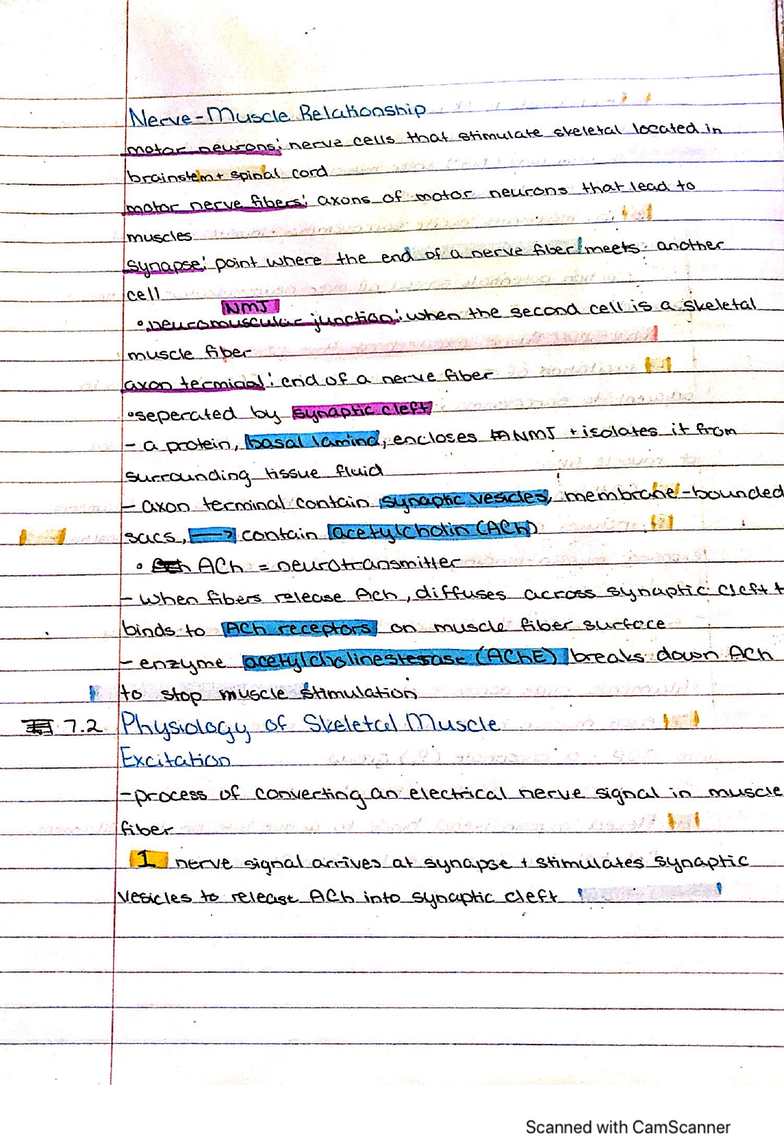 Nerve-Muscle Relationship
motor neurons: nerve cells that stimulate skeletal located in
brainstem + spinal cord
motor nerve fibers: axons of motor neurons that lead to
muscles
synapse: point where the end of a nerve fiber meets another
cell
NMJ
•neuromuscular junction: when the second cell is a skeletal
muscle fiber
axon terminal: end of a nerve fiber
•seperated by synaptic cleft
- a protein, basal lamina, encloses NMJ + isolates it from
surrounding tissue fluid
- axon terminal contain synaptic vesicles, membrane-bounded
sacs, → contain acetylcholin (ACh)
• ACh = neurotransmitter
- when fibers release Ach, diffuses across synaptic cleft +
binds to ACh receptors on muscle fiber surface
- enzyme acetylcholinesterase (AChE) breaks down ACh
to stop muscle stimulation
7.2 Physiology of Skeletal Muscle
Excitation
-process of converting an electrical nerve signal in muscle
fiber
1 nerve signal arrives at synapse + stimulates synaptic
vesicles to release ACh into synaptic cleft
Scanned with CamScanner